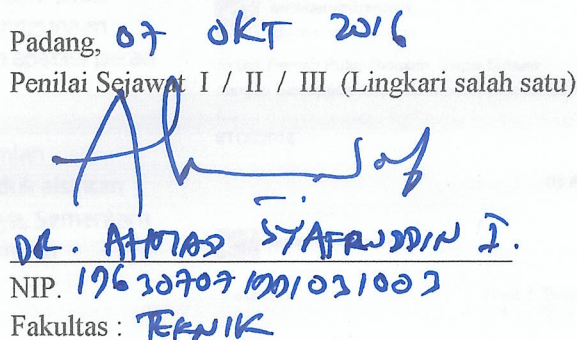 Padang, 07 OKT 2016
Penilai Sejawat I / II / III (Lingkari salah satu)
DR. AHMAD SYAFRUDDIN I.
NIP. 196307071991031003
Fakultas : TEKNIK